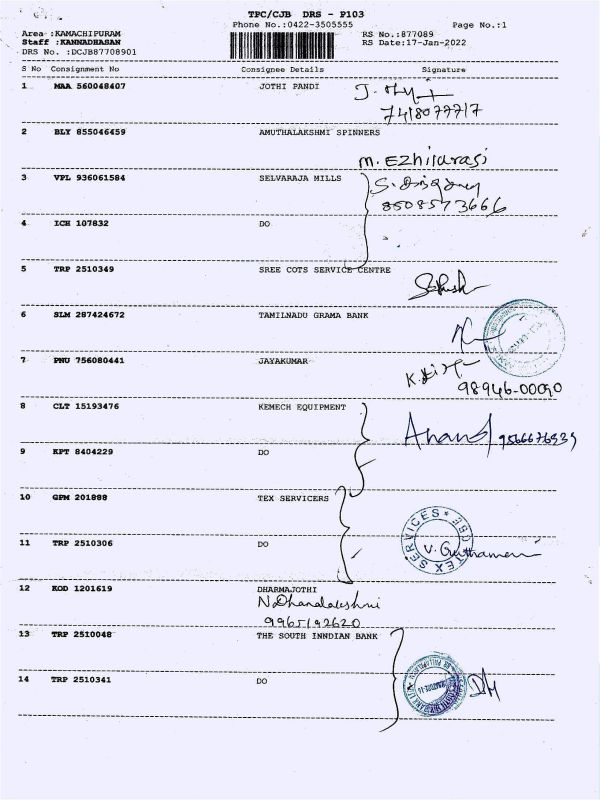 TPC/CJB DRS - P103
Phone No.:0422-3505555
Page No.:1
Area :KAMACHIPURAM
RS No.:877089
Staff :KANNADHASAN
RS Date:17-Jan-2022
DRS No. :DCJB87708901
S No Consignment No Consignee Details Signature
1 MAA 560048407 JOTHI PANDI
7418077717
2 BLY 855046459 AMUTHALAKSHMI SPINNERS
M. EZhilarasi
3 VPL 936061584 SELVARAJA MILLS
8508573666
4 ICH 107832 DO
5 TRP 2510349 SREE COTS SERVICE CENTRE
6 SLM 287424672 TAMILNADU GRAMA BANK
7 PNU 756080441 JAYAKUMAR
98946-00090
8 CLT 15193476 KEMECH EQUIPMENT
Anand
9 KPT 8404229 DO
10 GPM 201888 TEX SERVICERS
TEX SERVICES
11 TRP 2510306 DO
12 KOD 1201619 DHARMAJOTHI
N.Dhanalakshmi
9965192620
13 TRP 2510048 THE SOUTH INNDIAN BANK
14 TRP 2510341 DO